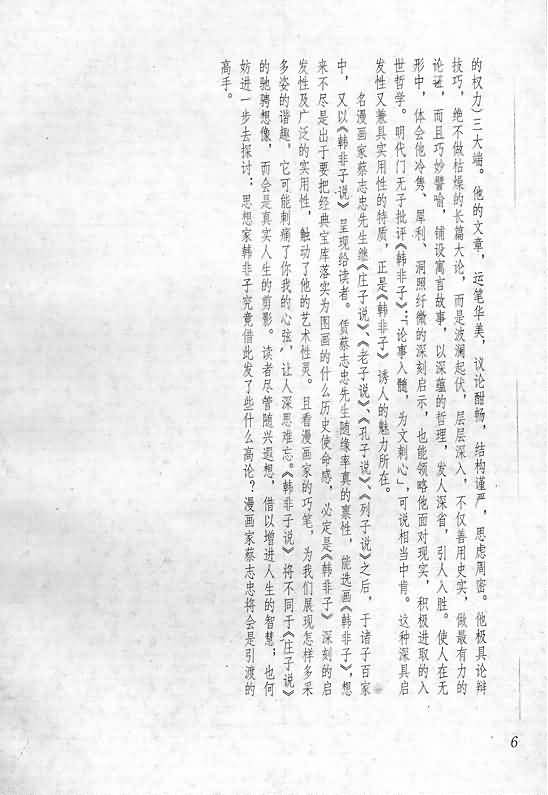 的权力)三大端。他的文章，运笔华美，议论酣畅，结构谨严，思虑周密。他极具论辩
技巧，绝不做枯燥的长篇大论，而是波澜起伏，层层深入，不仅善用史实，做最有力的
论证，而且巧妙譬喻，铺设寓言故事，以深蕴的哲理，发人深省，引人入胜。使人在无
形中，体会他冷隽、犀利、洞照纤微的深刻启示，也能领略他面对现实，积极进取的入
世哲学。明代门无子批评《韩非子》：「论事入髓，为文刺心」，可说相当中肯。这种深具启
发性又兼具实用性的特质，正是《韩非子》诱人的魅力所在。
名漫画家蔡志忠先生继《庄子说》、《老子说》、《孔子说》、《列子说》之后，于诸子百家
中，又以《韩非子说》呈现给读者。凭蔡志忠先生随缘率真的禀性，能选画《韩非子》，想
来不尽是出于要把经典宝库落实为图画的什么历史使命感，必定是《韩非子》深刻的启
发性及广泛的实用性，触动了他的艺术性灵。且看漫画家的巧笔，为我们展现怎样多采
多姿的谐趣，它可能刺痛了你我的心弦，让人深思难忘。《韩非子说》将不同于《庄子说》
的驰骋想像，而会是真实人生的剪影。读者尽管随兴遐想，借以增进人生的智慧；也何
妨进一步去探讨：思想家韩非子究竟借此发了些什么高论？漫画家蔡志忠将会是引渡的
高手。
6